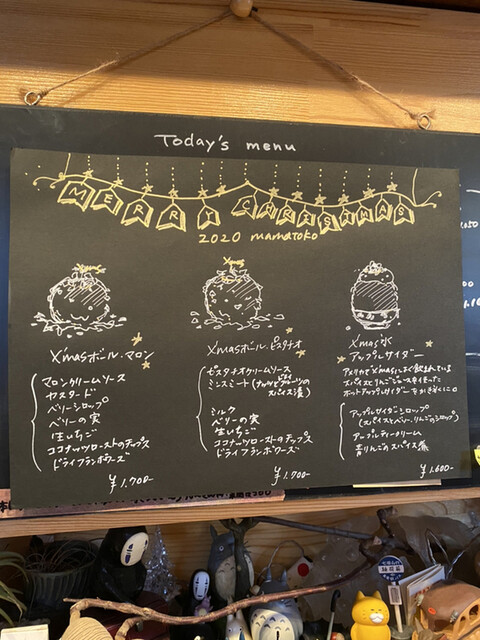 Today's menu
MERRY CHRISTMAS
2020 mamatoko
Xmas
Xmas
X'masボール・マロン
マロンクリームソース
カスタード
ベリーシロップ
ベリーの実
生いちご
ココナッツローストのチップス
ドライフランボワーズ
¥1.700-
X'masボール・ピスタチオ
ピスタチオクリームソース
ミンスミート(ナッツとドライフルーツの
スパイス漬)
ミルク
ベリーの実
生いちご
ココナッツローストのチップス
ドライフランボワーズ
¥1.700-
X'mas氷
アップルサイダー
アメリカでX'masによく飲まれている
スパイスとりんごジュースを使った
ホットアップルサイダーをかき氷に
アップルサイダーシロップ
(スパイスとベリー、りんごのシロップ)
アップルティークリーム
青りんごのスパイス煮
¥1.600-